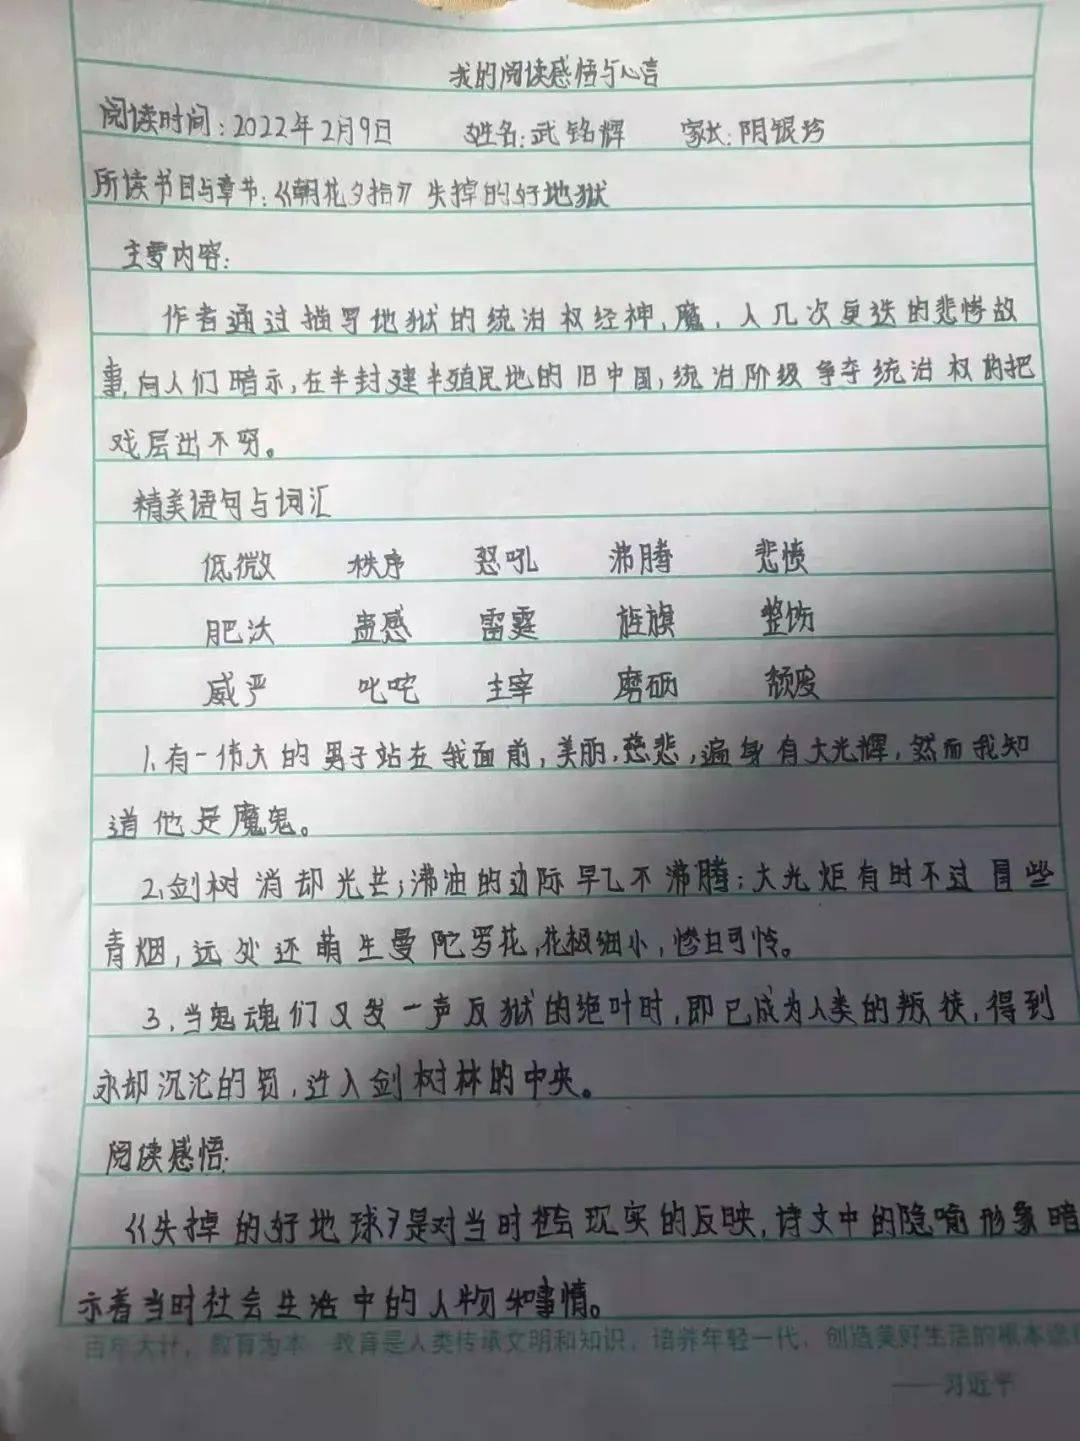 我的阅读感悟与心言
阅读时间:2022年2月9日 姓名:武铭辉 家长:阴银珍
所读书目与章节:《朝花夕拾》失掉的好地狱
主要内容:
作者通过描写地狱的统治权经神、魔、人几次更迭的悲惨故
事,向人们暗示,在半封建半殖民地的旧中国,统治阶级争夺统治权的把
戏层出不穷。
精美语句与词汇
低微 秩序 怒吼 沸腾 悲愤
肥沃 蛊惑 雷霆 旌旗 整饬
威严 叱咤 主宰 磨砺 颓废
1.有一伟大的男子站在我面前,美丽,慈悲,遍身有大光辉,然而我知
道他是魔鬼。
2.剑树消却光芒;沸油的边际早已不沸腾;大光炬有时不过冒些
青烟,远处还萌生曼陀罗花,花极细小,惨白可怜。
3.当鬼魂们又发一声反狱的绝叶时,即已成为人类的叛徒,得到
永却沉沦的罚,迁入剑树林的中央。
阅读感悟:
《失掉的好地球》是对当时社会现实的反映,诗文中的隐喻形象暗
示着当时社会生活中的人物和事情。
百年大计,教育为本 教育是人类传承文明和知识,培养年轻一代、创造美好生活的根本途
——习近平